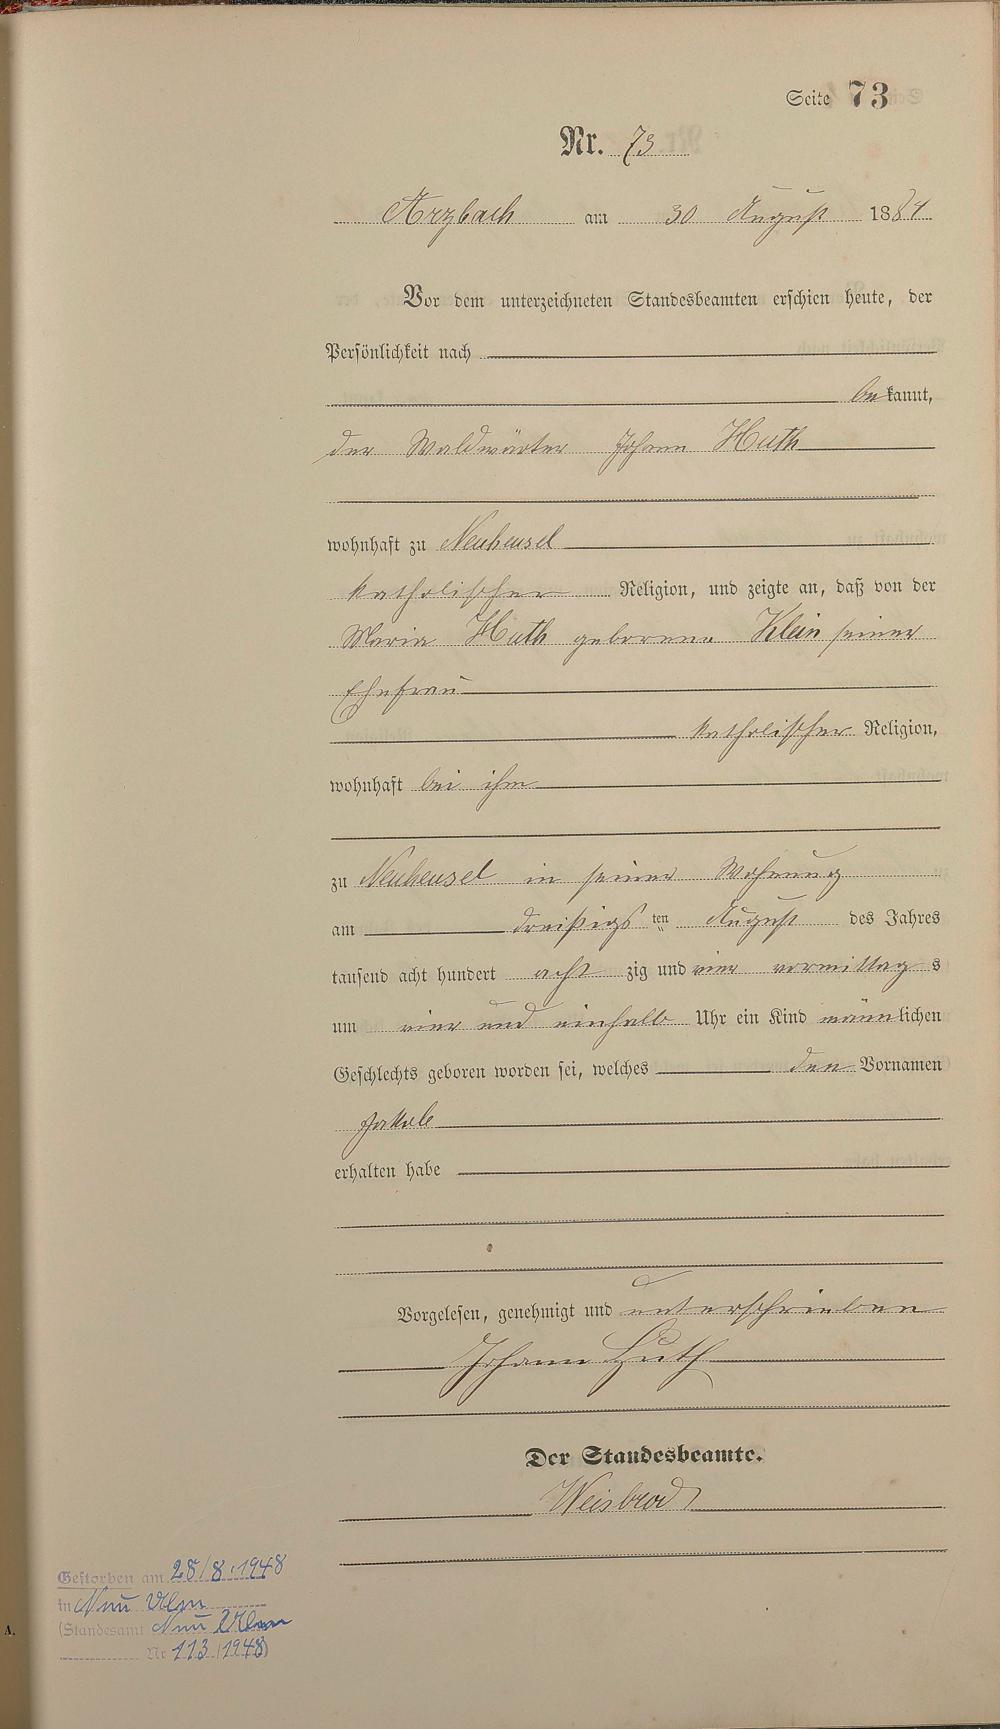 Seite 73
Nr. 73
Arzbach am 30 August 1884
Vor dem unterzeichneten Standesbeamten erschien heute, der
Persönlichkeit nach
bekannt,
der Waldwärter Johann Huth
wohnhaft zu Neuheusel
katholischer Religion, und zeigte an, daß von der
Maria Huth geborene Klein seiner
Ehefrau
katholischer Religion,
wohnhaft bei ihm
zu Neuheusel in seiner Wohnung
am dreißigsten August des Jahres
tausend acht hundert achtzig und vier vormittags
um vier und einhalb Uhr ein Kind männlichen
Geschlechts geboren worden sei, welches den Vornamen
Jakob
erhalten habe
Vorgelesen, genehmigt und unterschrieben
Johann Huth
Der Standesbeamte.
Weisbrod
Gestorben am 28/8.1948
in Neu Ulm
(Standesamt Neu Ulm
Nr 113/1948)
A.